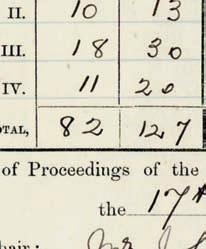 II. 10 13
III. 18 30
IV. 11 20
OTAL, 82 127
of Proceedings of the
the 17th
hair: